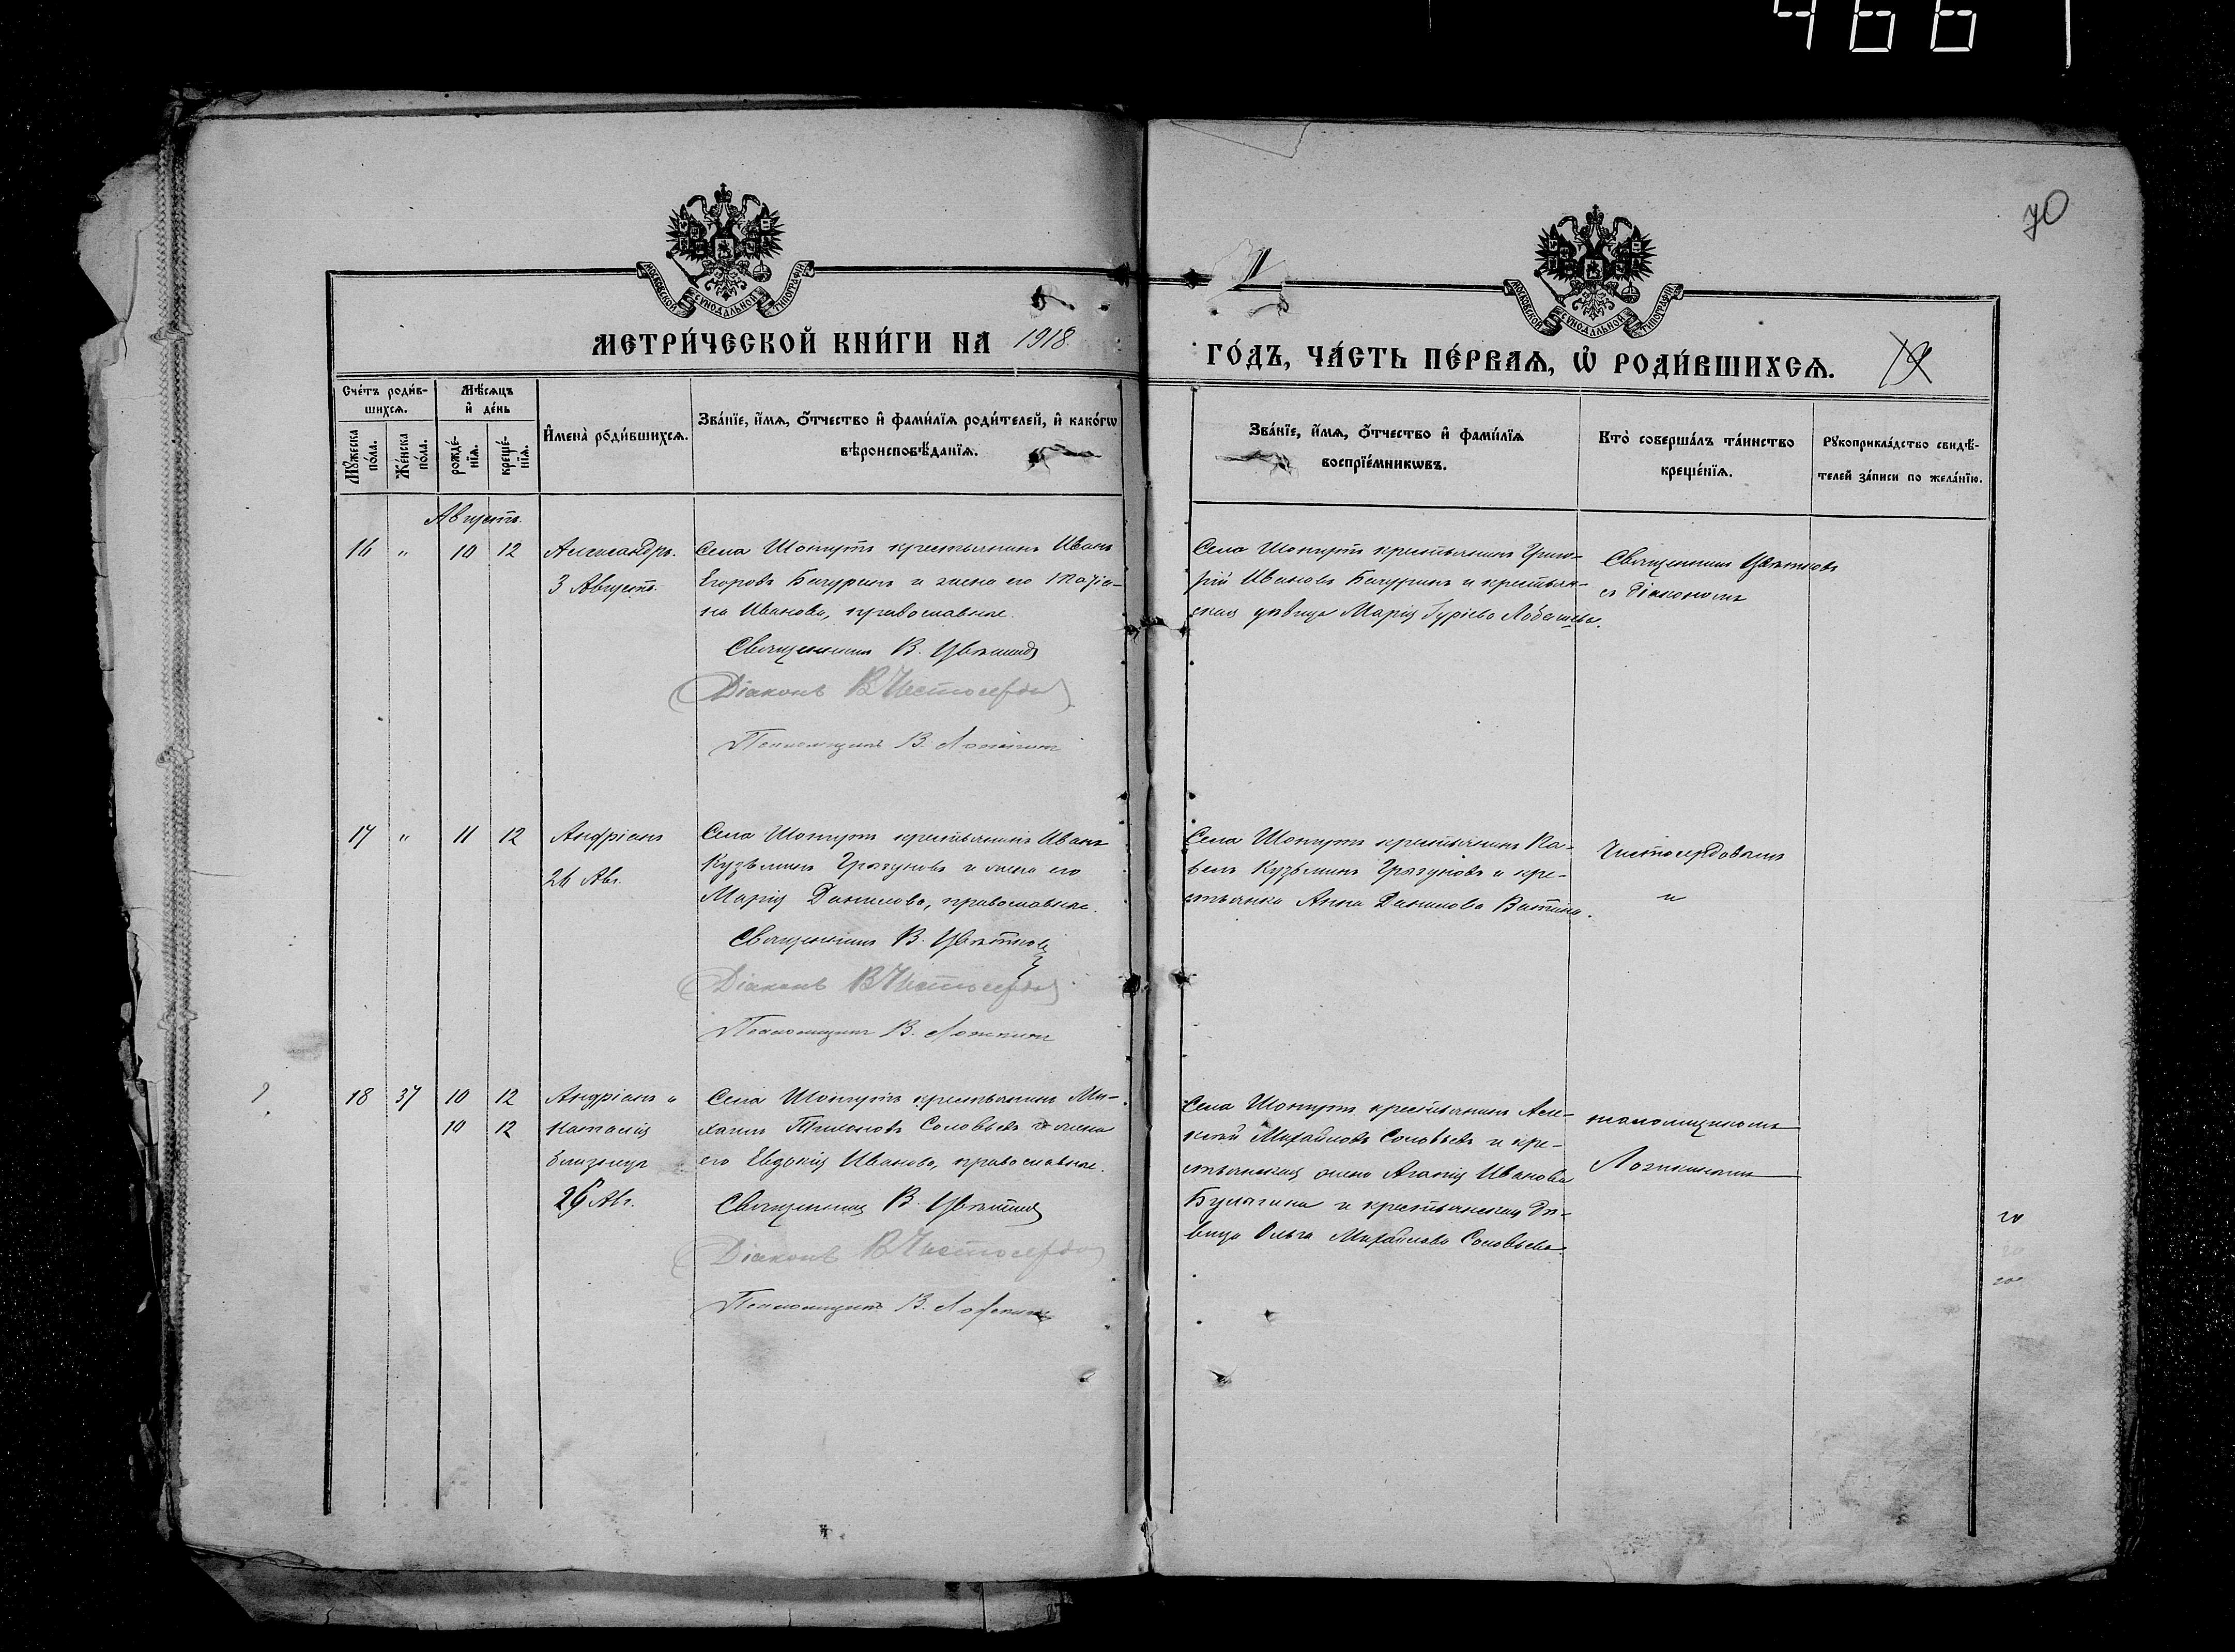 466
70
МОСКОВСКОЙ СѴНОДАЛЬНОЙ ТИПОГРАФІИ
МОСКОВСКОЙ СѴНОДАЛЬНОЙ ТИПОГРАФІИ
МЕТРИ́ЧЕСКОЙ КНИ́ГИ НА 1918
ГО́ДЪ, ЧА́СТЬ ПЕ́РВАѦ, Ѡ҆ РОДИ́ВШИХСѦ.
Сче́тъ роди́вшихсѧ.
Мѣ́сѧцъ и҆ де́нь
Мꙋ́жеска по́ла.
Же́нска по́ла.
рожде́нїѧ.
креще́нїѧ.
И҆мена̀ роди́вшихсѧ.
Зва́нїе, и҆́мѧ, ѻ҆́тчество и҆ фами́лїѧ роди́телей, и҆ како́гѡ
вѣроисповѣ́данїѧ.
Зва́нїе, и҆́мѧ, ѻ҆́тчество и҆ фами́лїѧ
воспрїе́мникѡвъ.
Кто̀ соверша́лъ та́инство
креще́нїѧ.
Рꙋкоприкла́дство свидѣ́-
телей за́писи по жела́нїю.
Августъ.
16 " 10 12 Александръ.
3 Августа.
Села крестьянинъ Иванъ
Егоровъ Бачуринъ и жена его
Иванова, православные.
Священникъ В. Цвѣтковъ
Діаконъ В Чистосердовъ
Псаломщикъ В. Ложкинъ
Села крестьянинъ Григо-
рій Ивановъ Бачуринъ и крестьян-
ская дѣвица Марія Гуріева
Священникъ Цвѣтковъ
съ діакономъ
17 " 11 12 Андріанъ
26 Авг.
Села крестьянинъ Иванъ
Кузьминъ и жена его
Марія Данилова, православные.
Священникъ В. Цвѣтковъ
Діаконъ В Чистосердовъ
Псаломщикъ В. Ложкинъ
Села крестьянинъ Па-
велъ Кузьминъ и кре-
стьянка Анна Данилова
Чистосердовымъ
и
18 37 10 12 Андріанъ и
10 12 Наталія
близнецы
26 Авг.
Села крестьянинъ Ми-
хаилъ Соловьевъ и жена
его Евдокія Иванова, православные.
Священникъ В. Цвѣтковъ
Діаконъ В Чистосердовъ
Псаломщикъ В. Ложкинъ
Села крестьянинъ Але-
ксѣй Михайловъ Соловьевъ и кре-
стьянская жена Иванова
и крестьянская дѣ-
вица Ольга Михайлова Соловьева
псаломщикомъ
Ложкинымъ